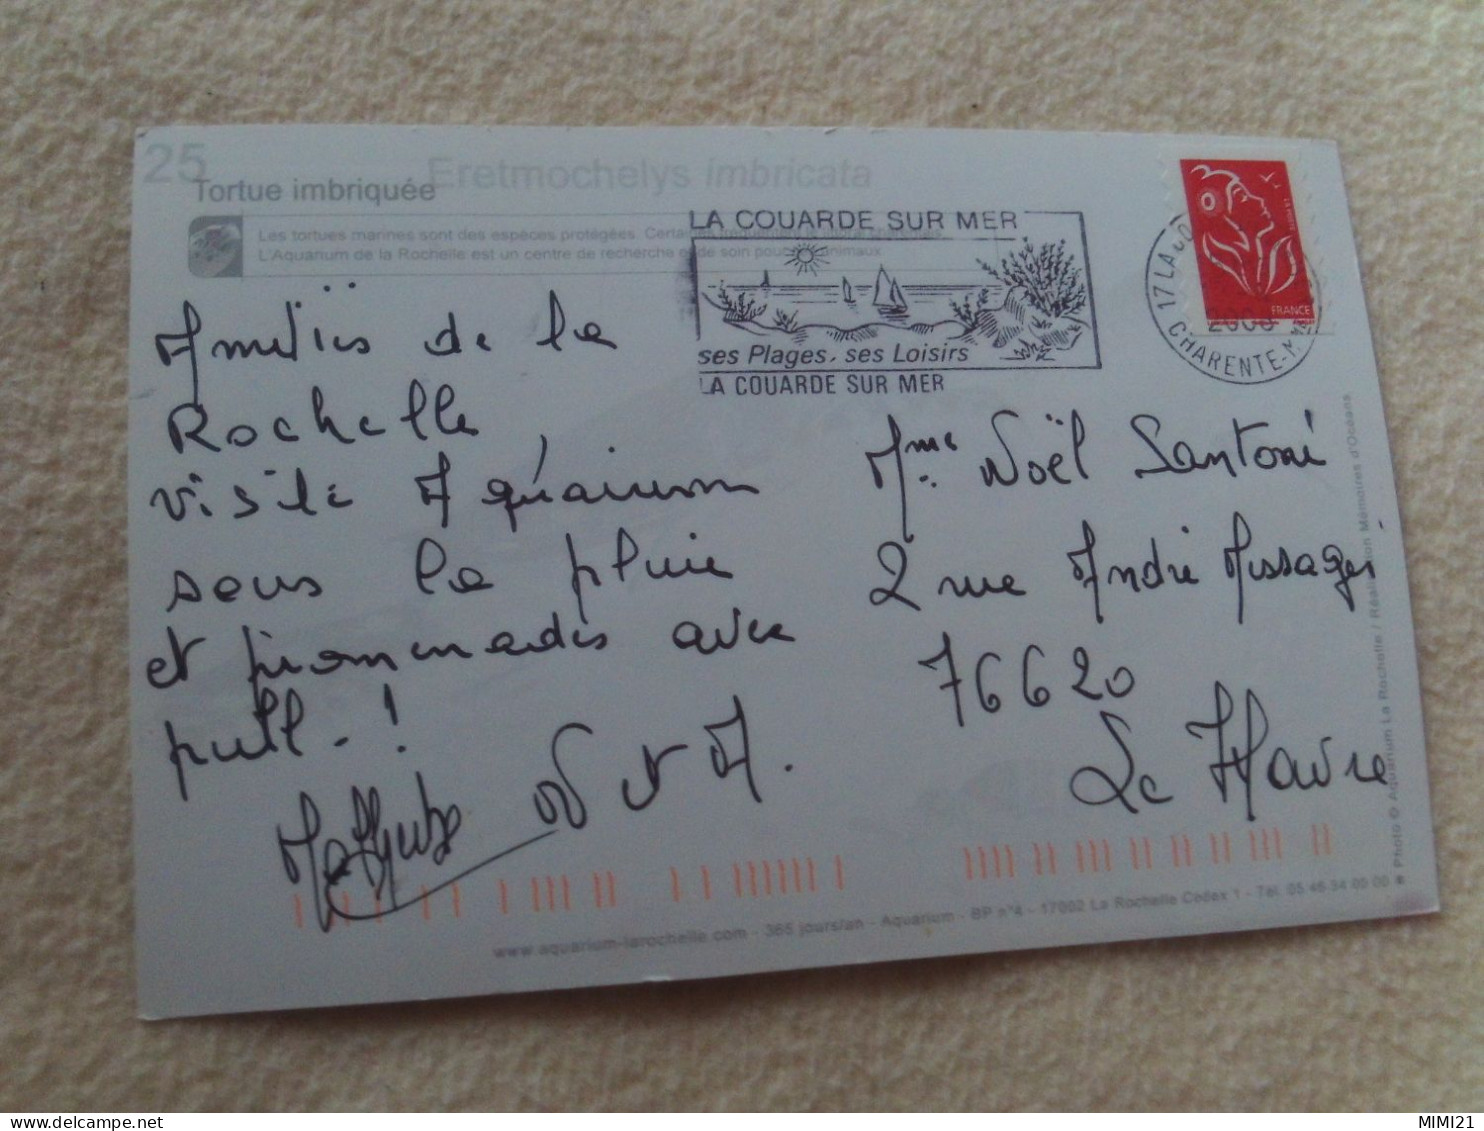 25
Eretmochelys imbricata
Tortue imbriquée
Les tortues marines sont des espèces protégées.
L'Aquarium de la Rochelle est un centre de recherche et de soin pour animaux
LA COUARDE SUR MER
ses Plages, ses Loisirs
LA COUARDE SUR MER
17 LA CO
CHARENTE-M
FRANCE
Amitiés de la
Rochelle
visite Aquairum
sous la pluie
et promenades avec
pull-!
N et A.
Mme Noël Santoni
2 rue André Messager
76620
Le Havre
www.aquarium-larochelle.com - 365 jours/an - Aquarium - BP n°4 - 17002 La Rochelle Cedex 1 - Tél. 05 46 34 00 00
Photo © Aquarium La Rochelle / Réalisation Mémoires d'Océans
MIMI21